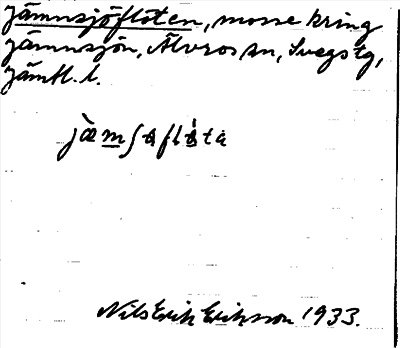 Jämnsjöflöten, mosse kring
Jämnsjön, Älvros sn, Svegs tg,
Jämtl. l.
Nils Erik Eriksson 1933.